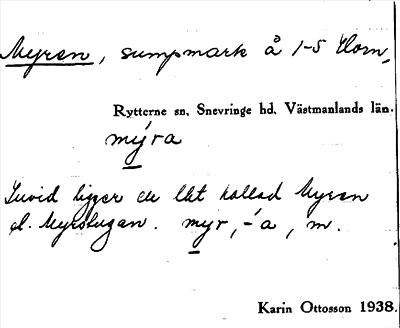 Myren, sumpmark å 1-5 Horn,
Rytterne sn. Snevringe hd. Västmanlands län.
mýra
Invid ligger en lht kallad Myren
el. Myrstugan. myr, -´a, m.
Karin Ottosson 1938.